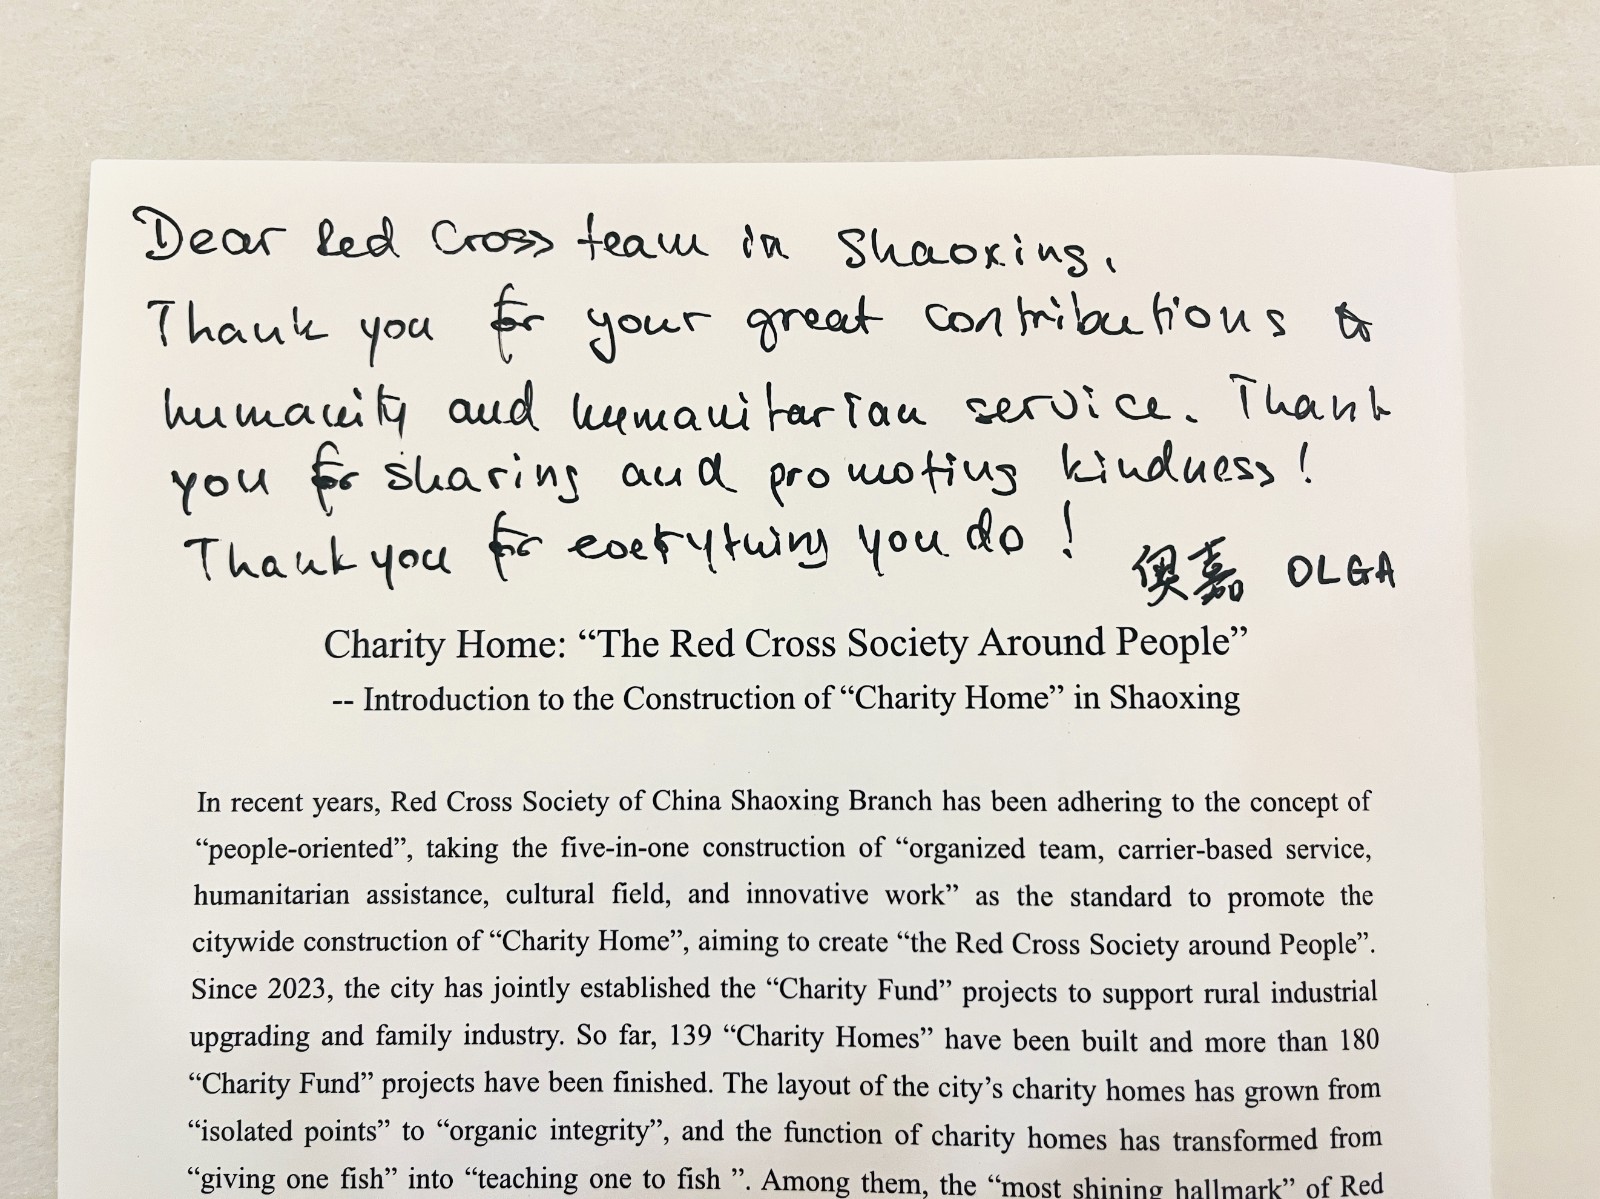 Dear Red Cross team in Shaoxing,
Thank you for your great contributions to
humanity and humanitarian service. Thank
you for sharing and promoting kindness!
Thank you for everything you do! 奥嘉 OLGA
Charity Home: “The Red Cross Society Around People”
-- Introduction to the Construction of “Charity Home” in Shaoxing
In recent years, Red Cross Society of China Shaoxing Branch has been adhering to the concept of
“people-oriented”, taking the five-in-one construction of “organized team, carrier-based service,
humanitarian assistance, cultural field, and innovative work” as the standard to promote the
citywide construction of “Charity Home”, aiming to create “the Red Cross Society around People”.
Since 2023, the city has jointly established the “Charity Fund” projects to support rural industrial
upgrading and family industry. So far, 139 “Charity Homes” have been built and more than 180
“Charity Fund” projects have been finished. The layout of the city’s charity homes has grown from
“isolated points” to “organic integrity”, and the function of charity homes has transformed from
“giving one fish” into “teaching one to fish ”. Among them, the “most shining hallmark” of Red